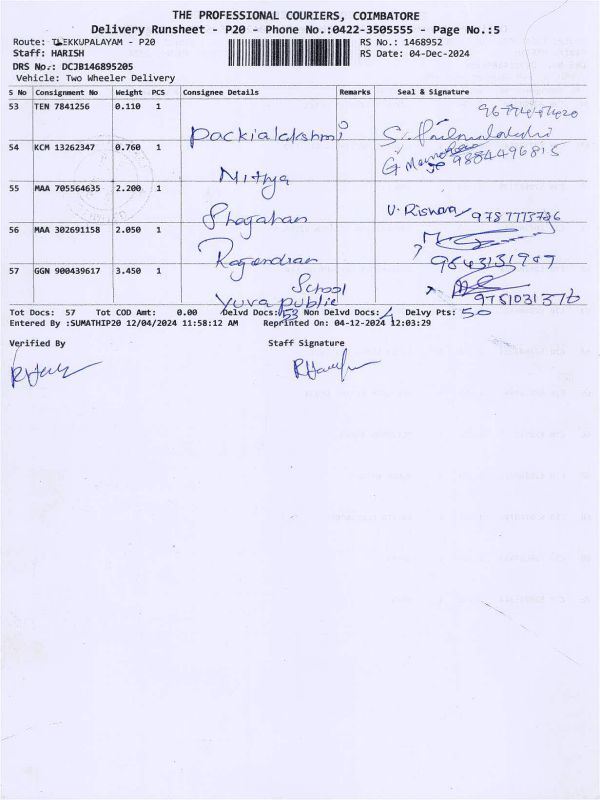 THE PROFESSIONAL COURIERS, COIMBATORE
Delivery Runsheet - P20 - Phone No.:0422-3505555 - Page No.:5
Route: TLEKKUPALAYAM - P20 RS No.: 1468952
Staff: HARISH RS Date: 04-Dec-2024
DRS No.: DCJB146895205
Vehicle: Two Wheeler Delivery
S No Consignment No Weight PCS Consignee Details Remarks Seal & Signature
53 TEN 7841256 0.110 1
Packialakshmi
54 KCM 13262347 0.760 1 9884496815
Nithya
55 MAA 705564635 2.200 1
Shagahan U. Riswan 9787773726
56 MAA 302691158 2.050 1
Ragendran 9843131907
57 GGN 900439617 3.450 1
School
Yuva public 9751031376
Tot Docs: 57 Tot COD Amt: 0.00 Delvd Docs: 53 Non Delvd Docs: 4 Delvy Pts: 50
Entered By :SUMATHIP20 12/04/2024 11:58:12 AM Reprinted On: 04-12-2024 12:03:29
Verified By Staff Signature